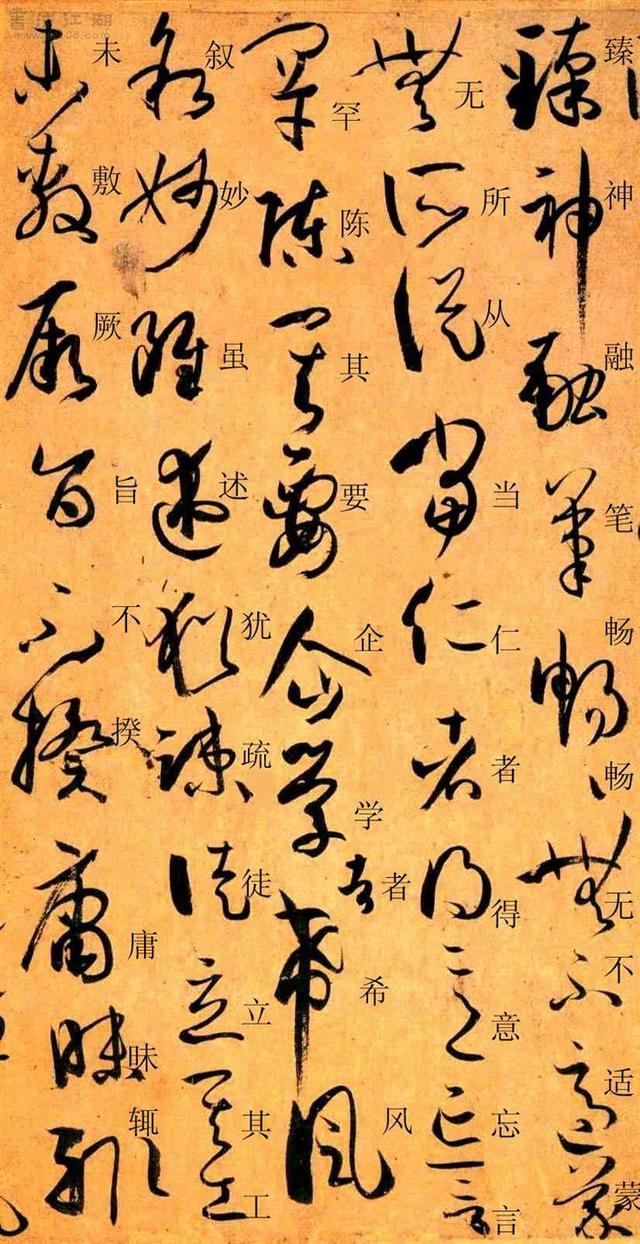 臻神融笔畅畅无不适蒙
无所从当仁者得意忘言
罕陈其要企学者希风
叙妙虽述犹疏徒立其工
未敷厥旨不揆庸昧辄